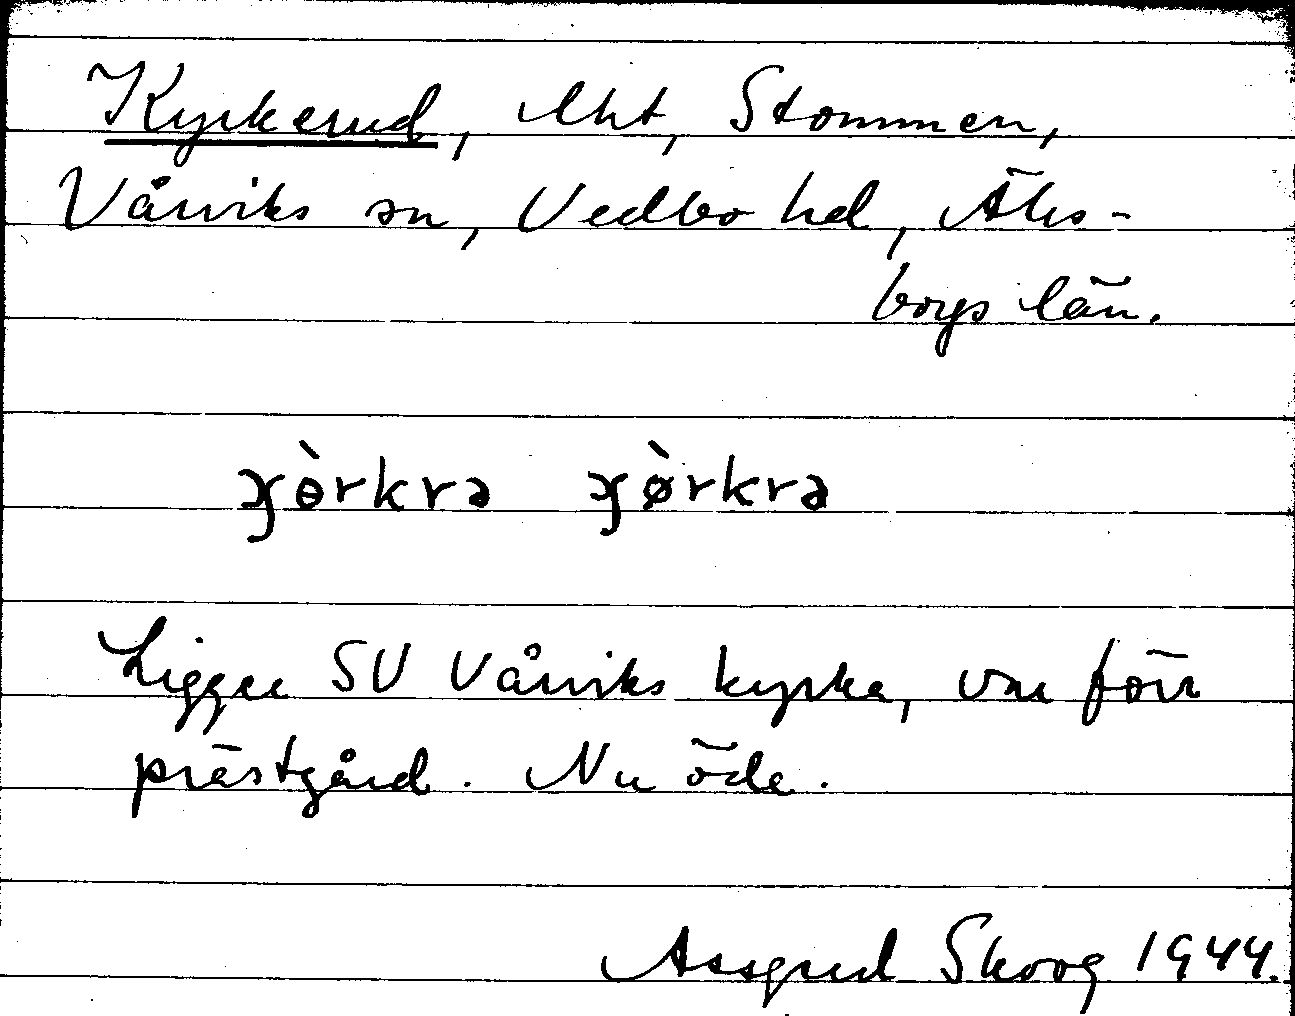 Kyrkerud, lht, Stommen,
Vårviks sn, Vedbo hd, Älvs-
borgs län.
ɧɵ̀rkrə ɧø̀rkrə
Ligger SV Vårviks kyrka, var förr
prästgård. Nu öde.
Assgerd Skoog 1944.